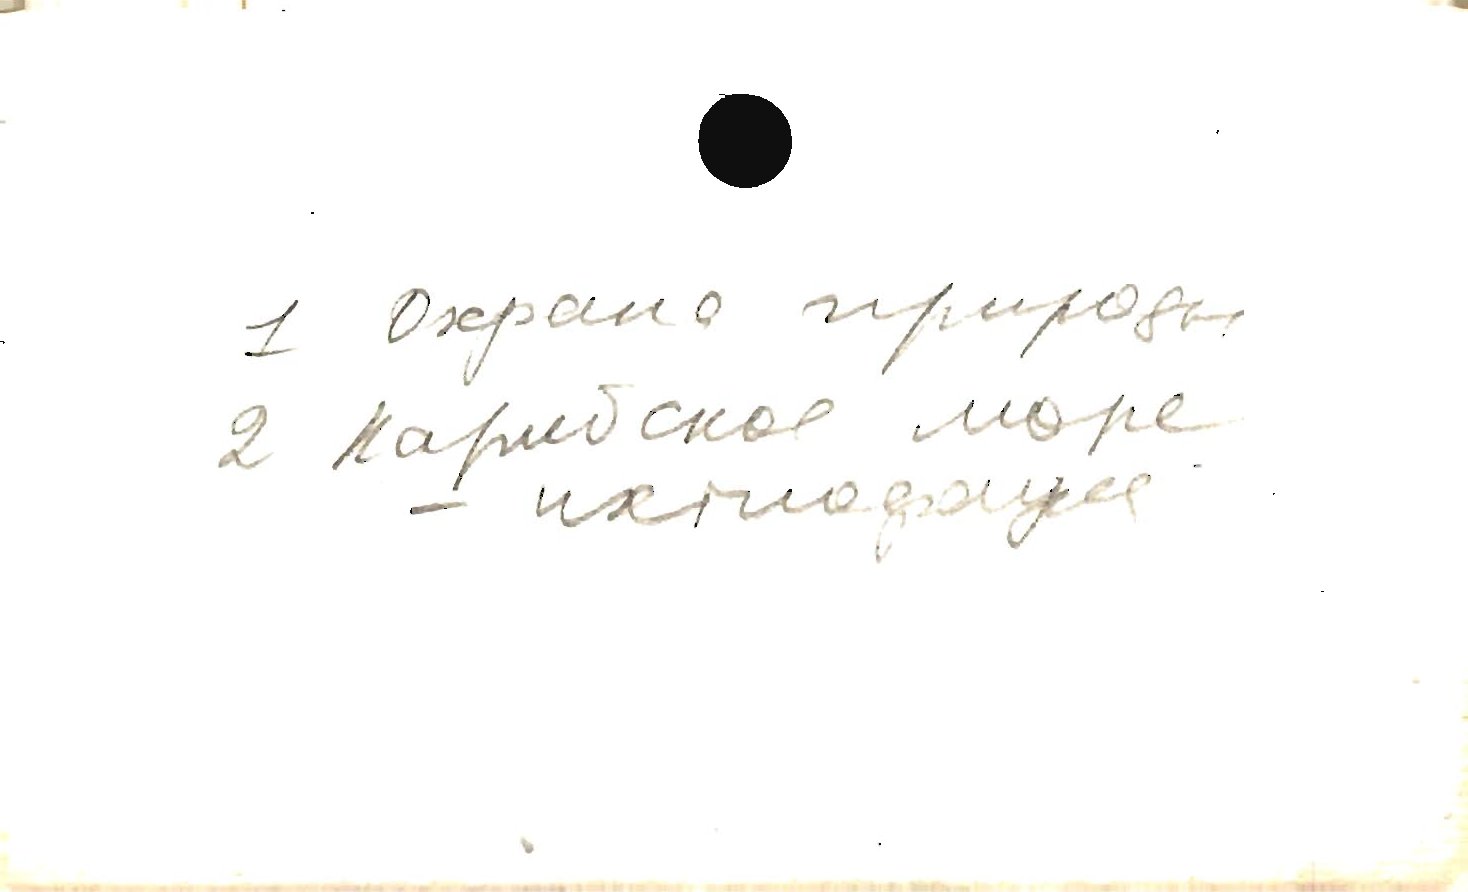 1 Охрана природы
2 Карибское море
– ихтиофауна